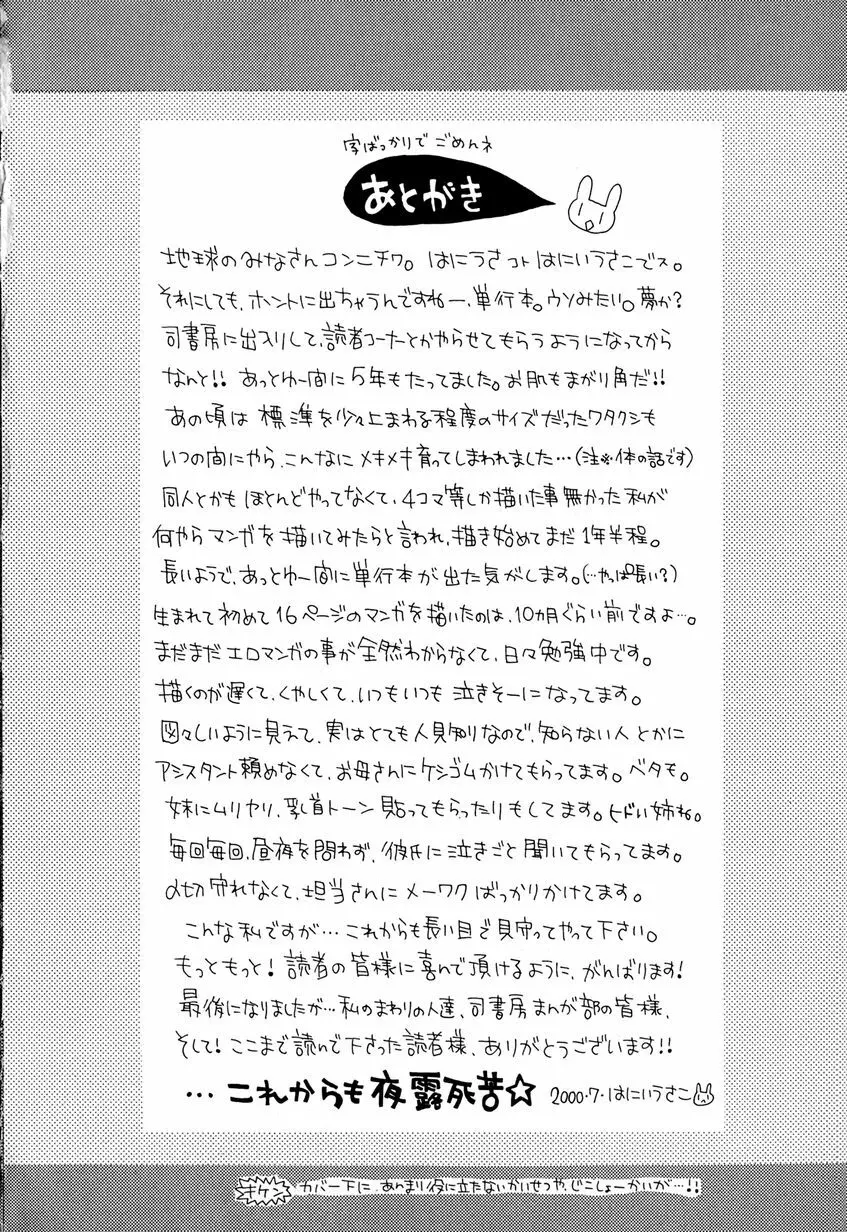 字ばっかりで ごめんネ
あとがき
地球のみなさんコンニチワ。はにうさコト はにいうさこでス。
それにしても、ホントに出ちゃうんですねー、単行本。ウソみたい。夢か?
司書房に出入りして、読者コーナーとかやらせてもらうようになってから
なんと!! あっとゆー間に5年もたってました。お肌もまがり角だ!!
あの頃は 標準を少々上まわる程度のサイズだったワタクシも
いつの間にやら、こんなに メキメキ育ってしまわれました…(注※体の話です)
同人とかも ほとんどやってなくて、4コマ等しか描いた事無かった私が
何やらマンガを描いてみたらと言われ、描き始めてまだ1年半程。
長いようで、あっとゆー間に単行本が出た気がします。(…やっぱ長い?)
生まれて初めて16ページのマンガを描いたのは、10カ月ぐらい前ですよ…。
まだまだエロマンガの事が全然わからなくて、日々勉強中です。
描くのが遅くて、くやしくて、いつもいつも 泣きそーになってます。
図々しいように見えて、実はとても人見知りなので、知らない人とかに
アシスタント頼めなくて、お母さんにケシゴムかけてもらってます。ベタも。
妹にムリヤリ、乳首トーン貼ってもらったりもしてます。ヒドい姉ね。
毎回毎回、昼夜を問わず、彼氏に泣きごと聞いてもらってます。
〆切守れなくて、担当さんにメーワクばっかりかけてます。
こんな私ですが…これからも長い目で見守ってやって下さい。
もっともっと! 読者の皆様に喜んで頂けるように、がんばります!
最後になりましたが…私のまわりの人達、司書房まんが部の皆様、
そして! ここまで読んで下さった読者様、ありがとうございます!!
…これからも夜露死苦☆ 2000・7・はにいうさこ
キケン カバー下に、あんまり役に立たないかいせつや、じこしょーかいが…!!